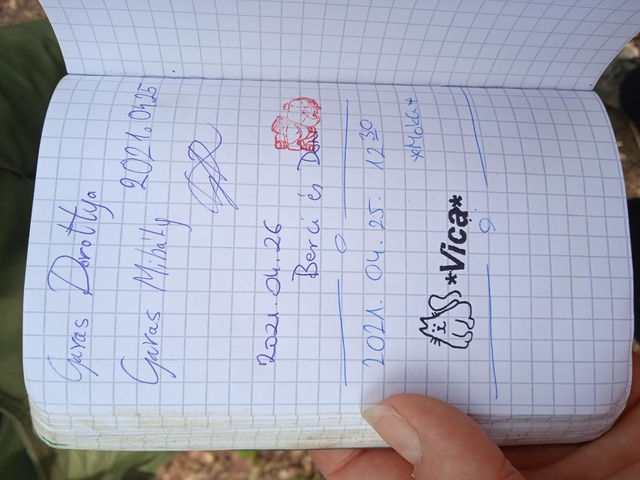 Guras Dorottya
Guras Mihály 2021.04.25
2021.04.26
Berci és Dóri
2021. 04. 25. 12 30
*Moka*
*Vica*